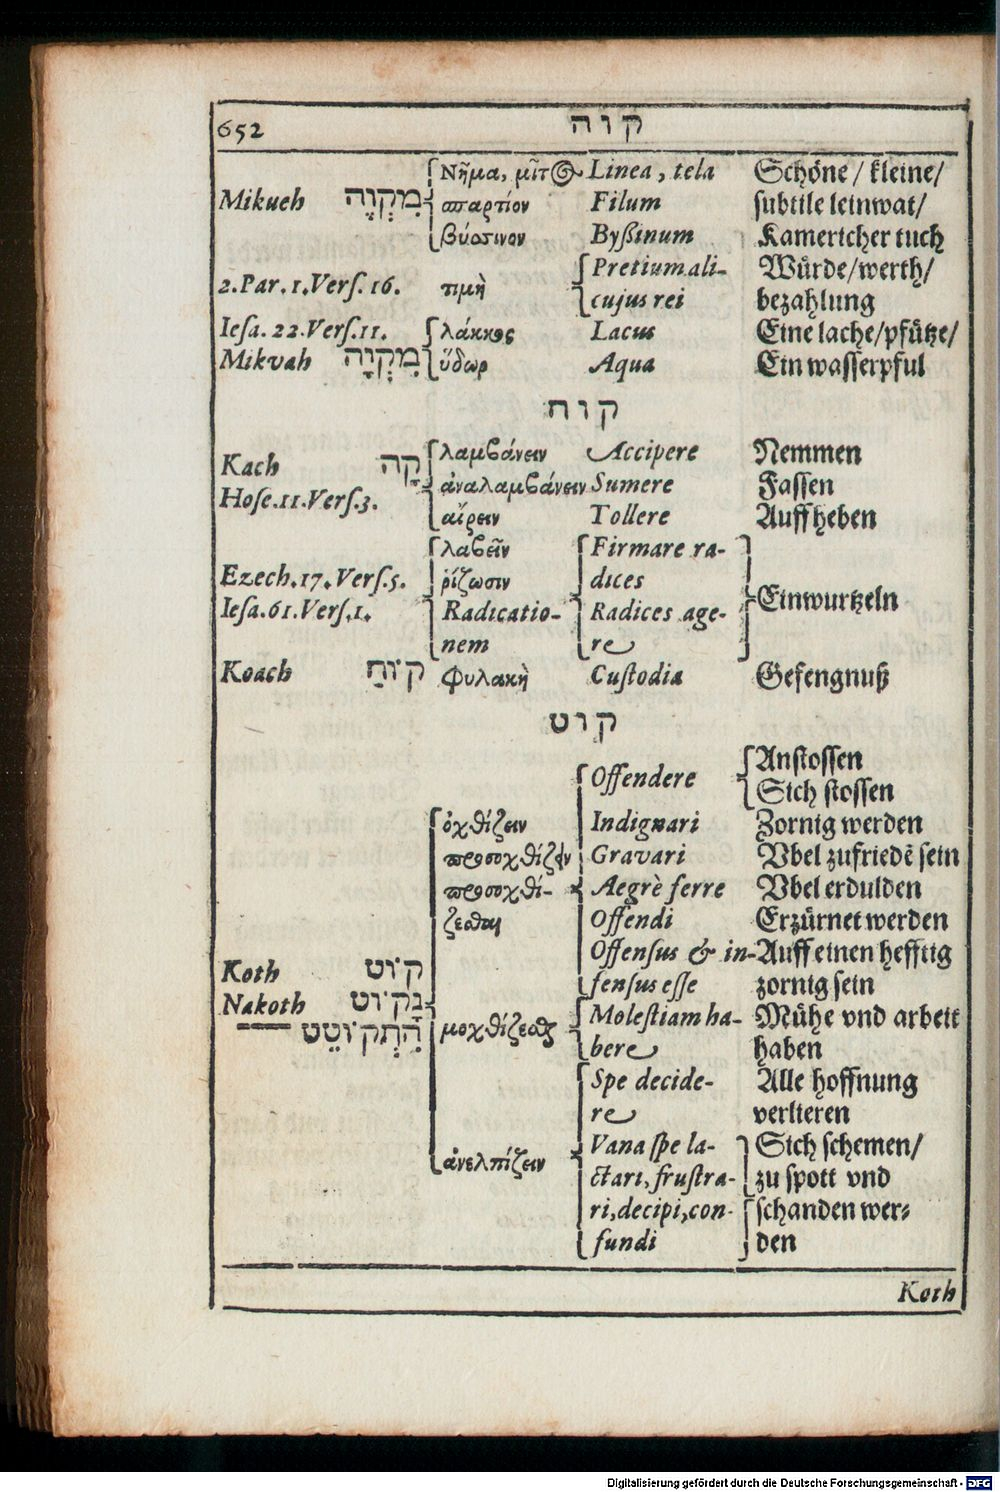 652 קוה
Νῆμα, μῖτος Linea, tela Schöne / kleine/
Mikueh מִקְוֶה σπαρτίον Filum subtile leinwat/
βύσσινον Byßinum Kamericher tuch
2. Par. 1. Vers. 16. τιμὴ Pretium ali- Würde/werth/
cujus rei bezahlung
Iesa. 22. Vers. 11. λάκκος Lacus Eine lache/pfütze/
Mikvah מִקְוָה ὕδωρ Aqua Ein wasserpful
קוח
Kach קָח λαμβάνειν Accipere Nemmen
Hose. 11. Vers. 3. ἀναλαμβάνειν Sumere Fassen
αἴρειν Tollere Auffheben
λαβεῖν Firmare ra-
Ezech. 17. Vers. 5. ῥίζωσιν dices
Iesa. 61. Vers. 1. Radicatio- Radices age- Einwurtzeln
nem re
Koach קוֹחַ φυλακὴ Custodia Gefengnuß
קוט
Offendere Anstossen
Sich stossen
ὀχθίζειν Indignari Zornig werden
προσοχθίζειν Gravari Vbel zufriedē sein
προσοχθί- Aegrè ferre Vbel erdulden
ζεσθαι Offendi Erzürnet werden
Offensus & in- Auff einen hefftig
Koth קוֹט fensus esse zornig sein
Nakoth נָקוֹט Molestiam ha- Mühe vnd arbeit
הִתְקוֹטֵט μοχθίζεσθαι bere haben
Spe decide- Alle hoffnung
re verlieren
Vana spe la- Sich schemen/
ἀνελπίζειν ctari, frustra- zu spott vnd
ri, decipi, con- schanden wer-
fundi den
Koth
Digitalisierung gefördert durch die Deutsche Forschungsgemeinschaft - DFG